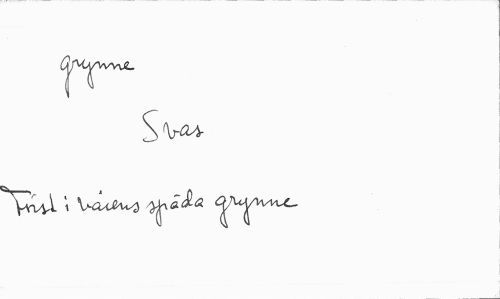 grynne
Svas
i vårens späda grynne